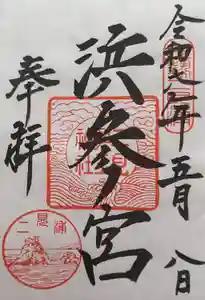 令和七年五月八日
浜参宮
奉拝
二見浦